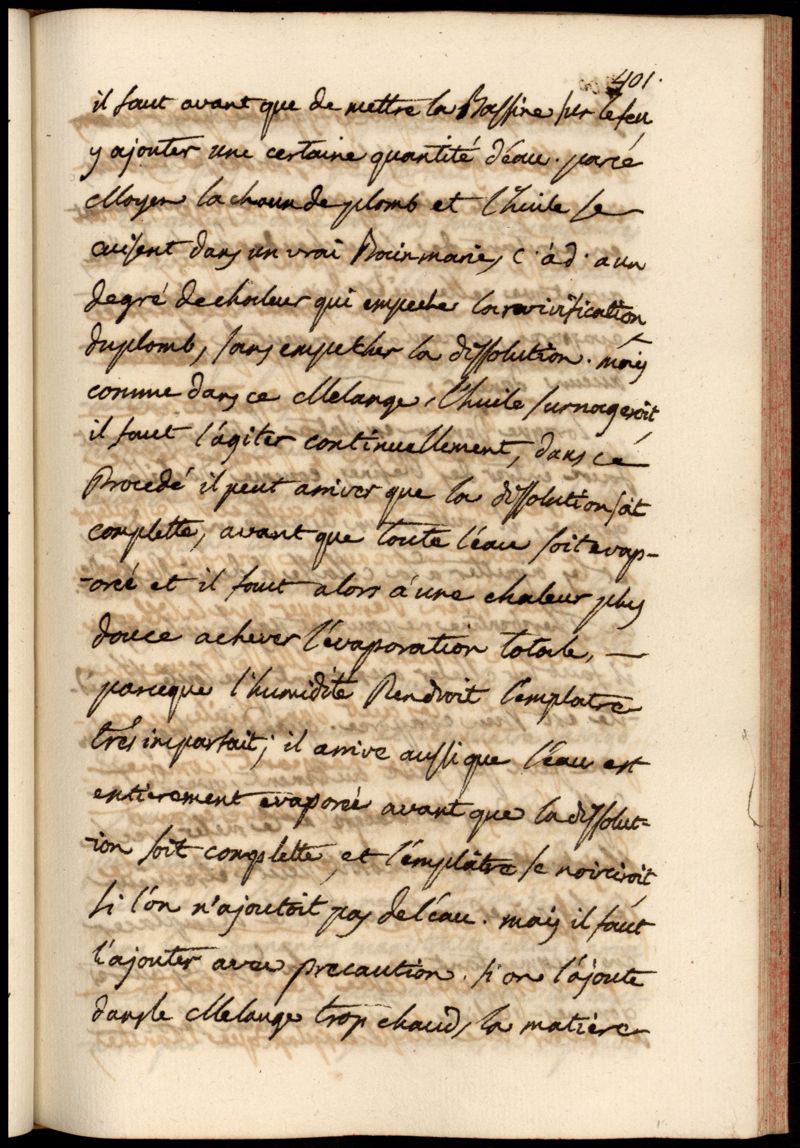 401.
il faut avant que de mettre la Bassine sur le feu
y ajouter une certaine quantité d'éau. par cé
Moyen la chaux de plomb et l'huile se
cuisent dans un vrai Bain marie, c. à d. a un
degré de chaleur qui empeche la revivification
du plomb, sans empecher la dissolution. mais
comme dans ce Melange, l'huile surnageroit,
il faut l'agiter continuellement, dans cé
Procedé il peut arriver que la dissolution soit
complette, avant que toute l'éau soit evap-
-oreé et il faut alors à une chaleur plus
douce achever l'évaporation totale, —
parceque l'humidité Rendroit l'emplatre
trés imparfait; il arrive aussi que l'éau est
entierement evaporeé avant que la dissolut-
-ion soit complette, et l'émplâtre se noirciroit
si l'ón n'ajoutoit pas de l'éau. mais il faut
l'ajouter avec precaution. si on l'ájoute
dans le Melange trop chaud, la matiere